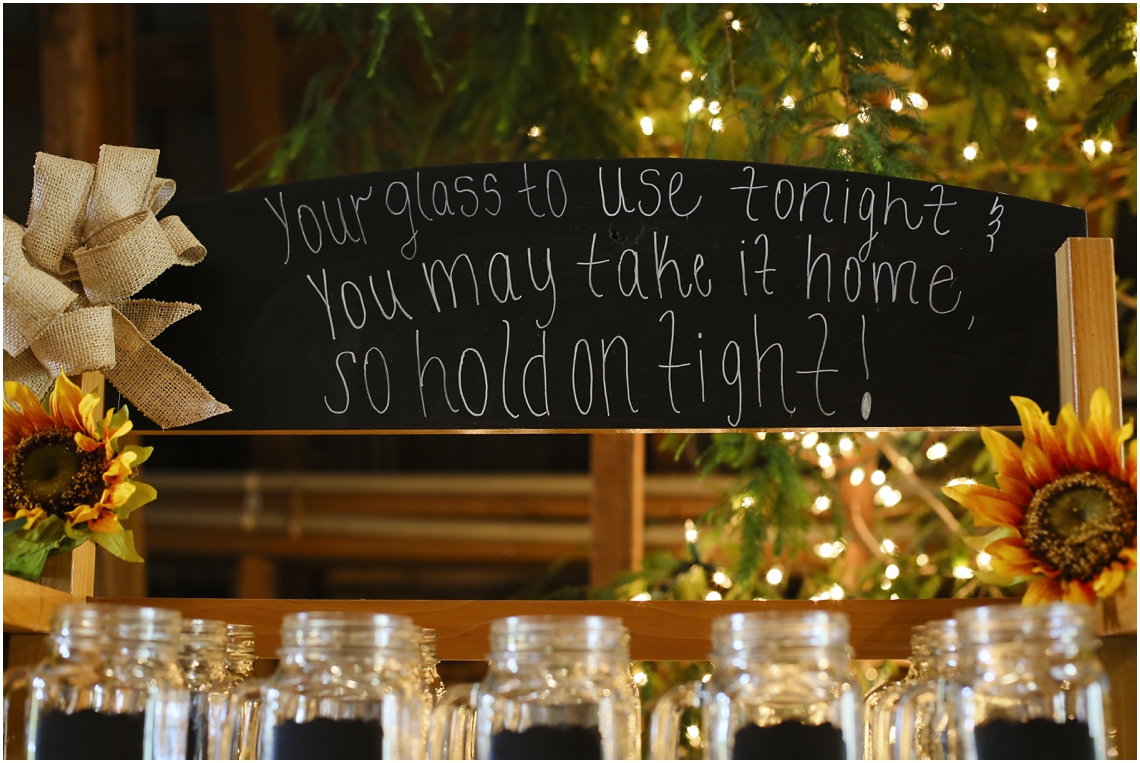 Your glass to use tonight &
You may take it home,
so hold on tight!